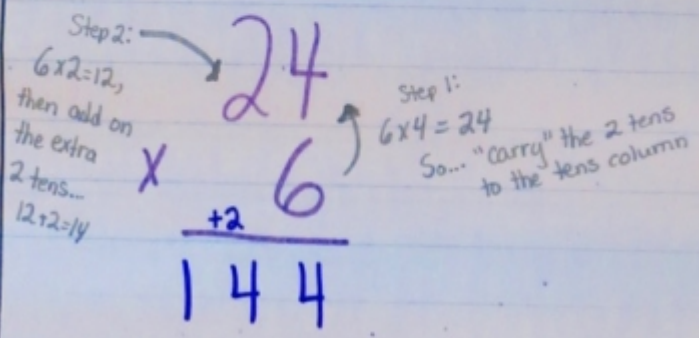 Step 2:
6x2=12,
then add on
the extra
2 tens...
12+2=14
24
x 6
+2
144
Step 1:
6x4=24
So... "carry" the 2 tens
to the tens column